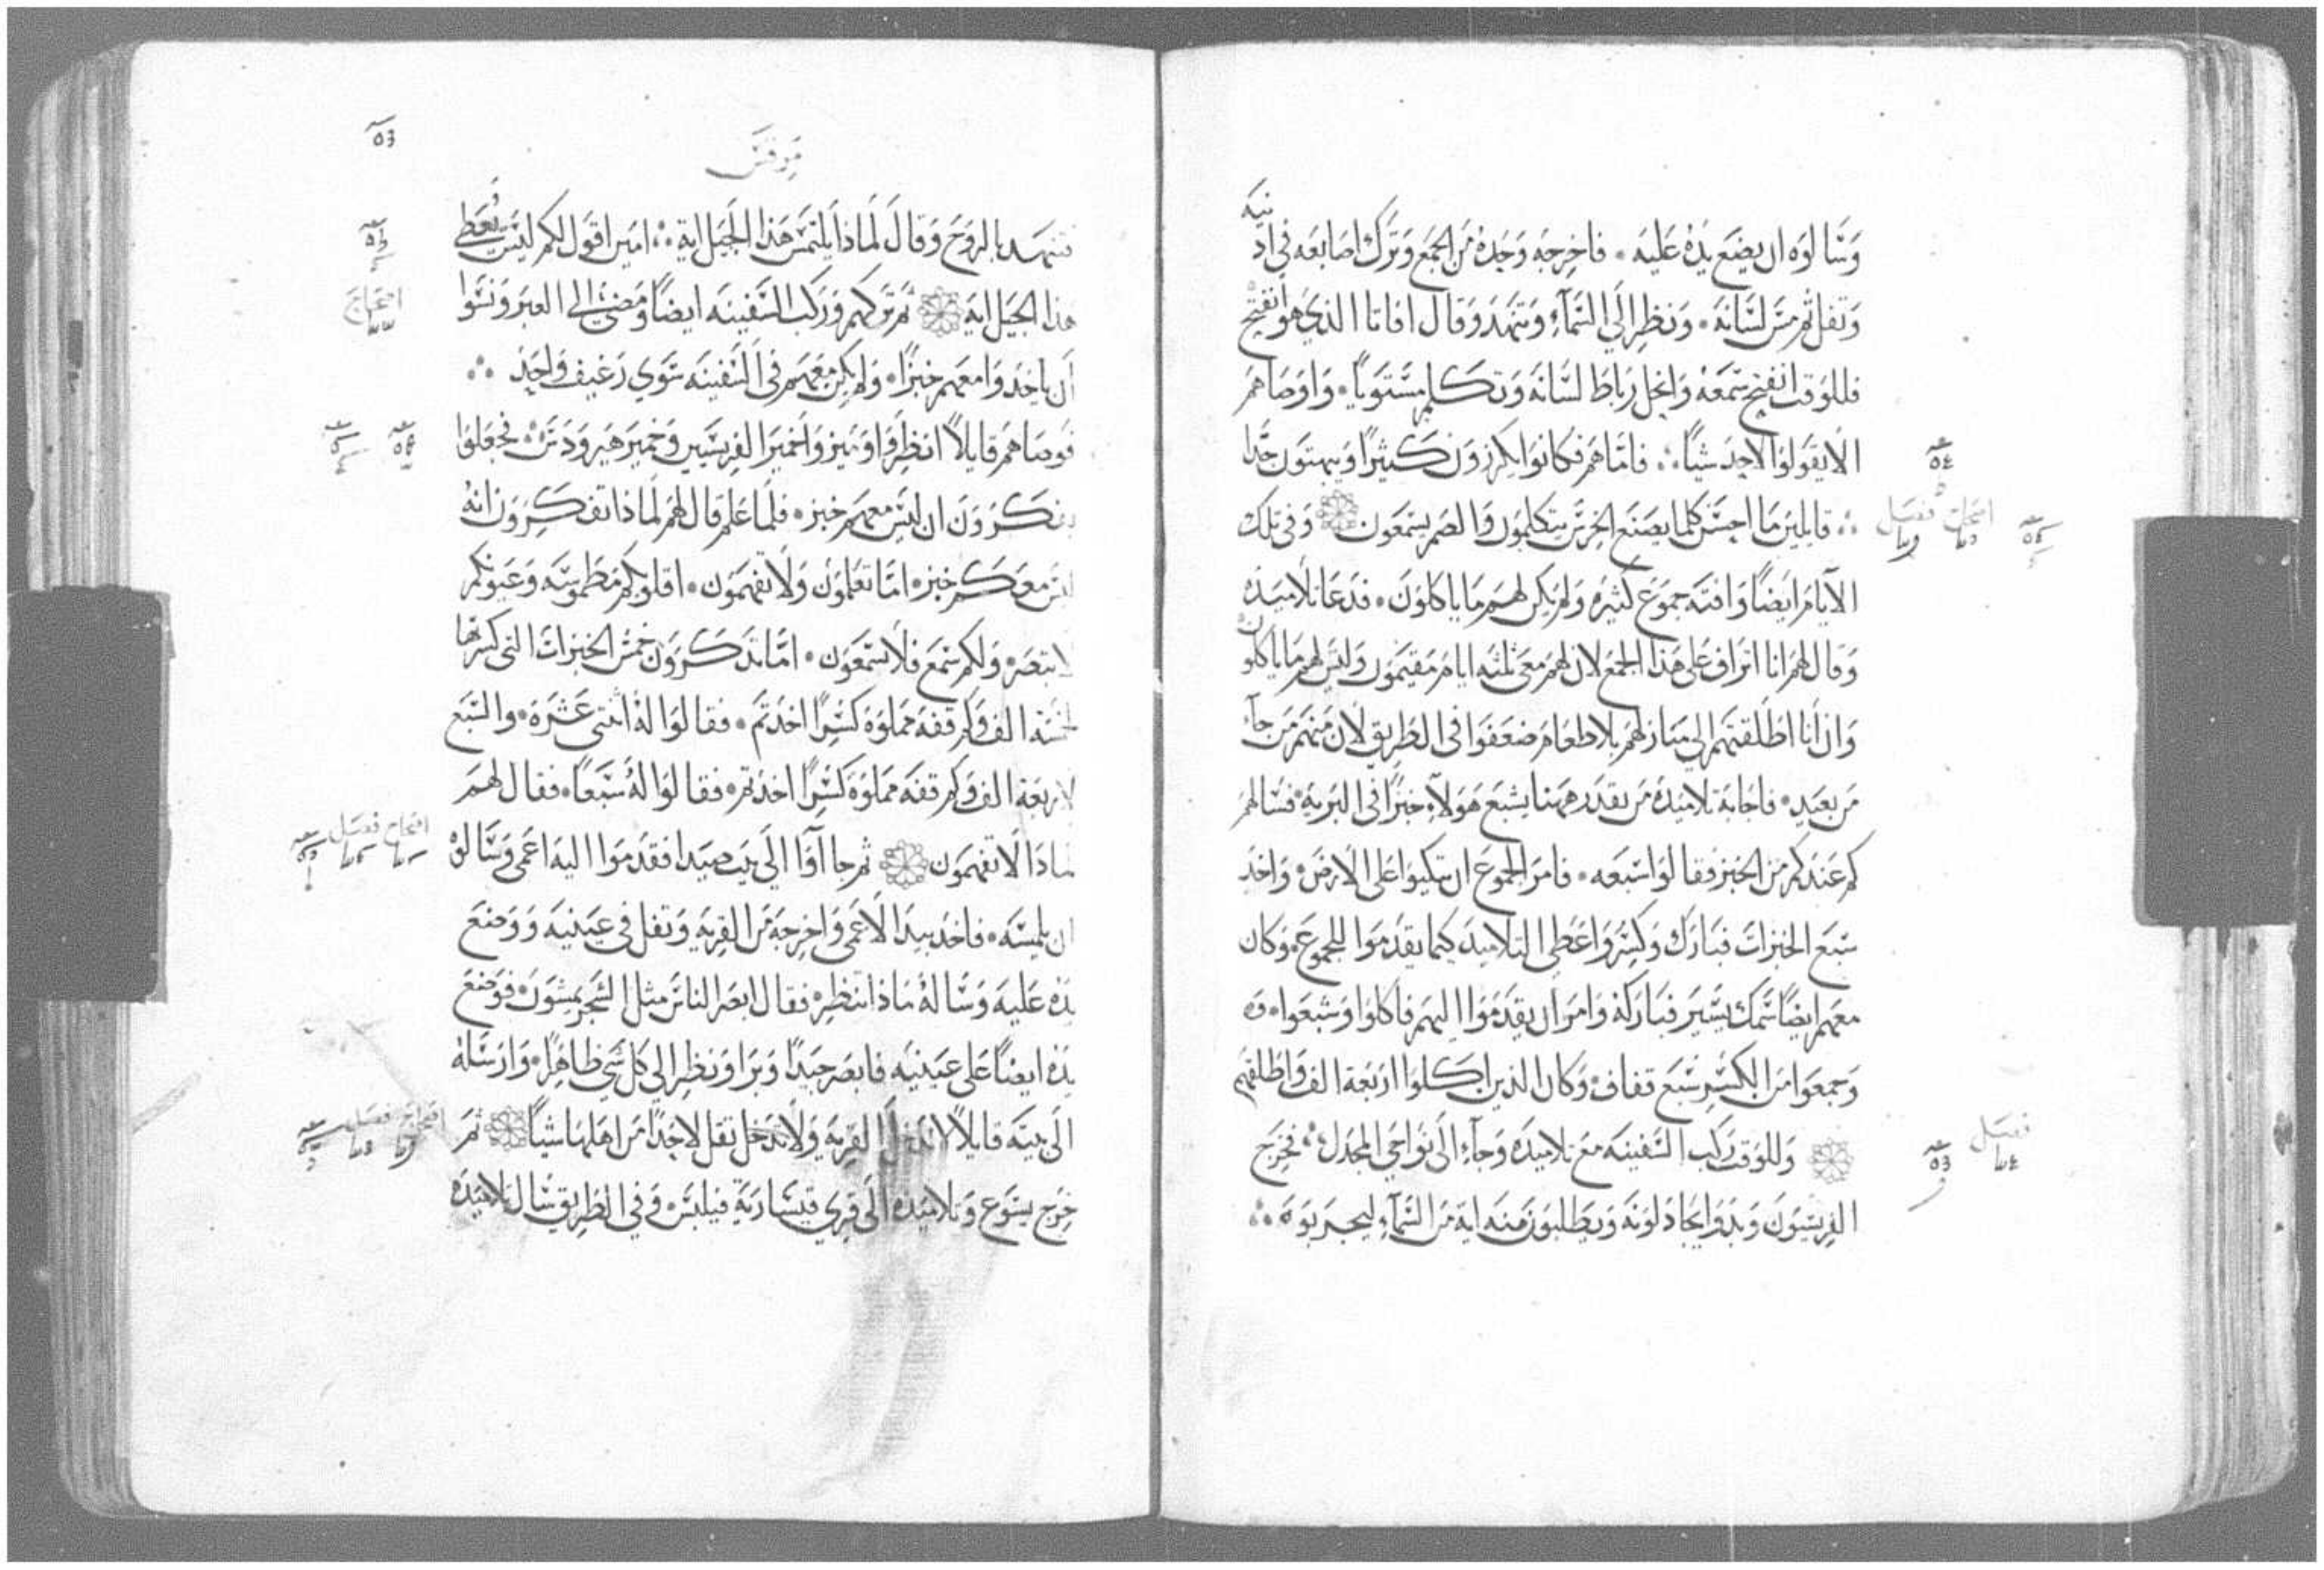 وسالوه ان يضع يده عليه فاخرجه وحده من الجمع وترك اصابعه في اذنيه
وتفل ثم مس لسانه ونظر الي السماء وتنهد وقال افاتا الذي هو انفتح
فللوقت انفتح سمعه وانحل رباط لسانه وتكلم مستويا واوصاهم
الا يقولوا لاحد شيا فاما هم فكانوا يكرزون كثيرا ويبهتون جدا
قايلين ما احسن كلما يصنع الخرس يتكلمون والصم يسمعون وفي تلك
الايام ايضا وافته جموع كثيره ولم يكن لهم ما ياكلون فدعا تلاميذه
وقال لهم انا اتراف على هذا الجمع لان لهم معي ثلثه ايام مقيمون وليس لهم ما ياكلون
وان انا اطلقتهم الي منازلهم بلا طعام ضعفوا في الطريق لان منهم من جاء
من بعيد فاجابة تلاميذه من يقدر ههنا يشبع هولاء خبزا في البرية فسالهم
كم عندكم من الخبز فقالوا سبعه فامر الجموع ان يتكيوا على الارض واخذ
سبع الخبزات فبارك وكسر واعطي التلاميد كيما يقدموا للجموع وكان
معهم ايضا سمك يسير فباركه وامر ان يقدموا اليهم فاكلوا وشبعوا
وجمعوا من الكسر سبع قفاف وكان الذين اكلوا اربعة الف واطلقهم
وللوقت ركب السفينه مع تلاميده وجاء الى نواحي المجدل فخرج
الفريسيون وبدوا يجادلونه ويطلبون منه اية من السماء ليجربوه
مرقس
فتنهد بالروح وقال لماذا يلتمس هذا الجيل اية امين اقول لكم ليس يعطي
هذا الجيل اية ثم تركهم وركب السفينه ايضا ومضي الي العبر ونسوا
ان ياخدوا معهم خبزا ولم يكن معهم في السفينه سوي رغيف واحد
فوصاهم قايلا انظروا وتميزوا خمير الفريسيين وخمير هيرودس فجعلوا
يفكرون ان ليس معهم خبز فلما علم قال لهم لماذا تفكرون انه
ليس معكم خبز اما تعلمون ولا تفهمون اقلوبكم مطموسه وعيونكم
لا تبصر ولكم سمع فلا تسمعون اما تذكرون خمس الخبزات التي كسرتها
لخمسة الف وكم قفه مملوة كسرا اخدتم فقالوا له اثنتي عشرة والسبع
لاربعة الف وكم قفه مملوة كسرا اخدتم فقالوا له سبعا فقال لهم
لماذا لا تفهمون ثم جااآ الي بيت صيدا فقدموا اليه اعمى وسالوه
ان يلمسه فاخد بيد الاعمى واخرجه من القرية وتفل في عينيه ووضع
يده عليه وساله ماذا تنظر فقال ابصر الناس مثل الشجر يمشون فوضع
يده ايضا على عينيه فابصر جيدا وبرا ونظر الي كل شي ظاهرا وارسله
الى بيته قايلا لا تدخل القرية ولا تدخل تقل لاحدا من اهلها شيا ثم
خرج يسوع وتلاميده الى قري قيسارية فيلبس وفي الطريق سال تلاميده